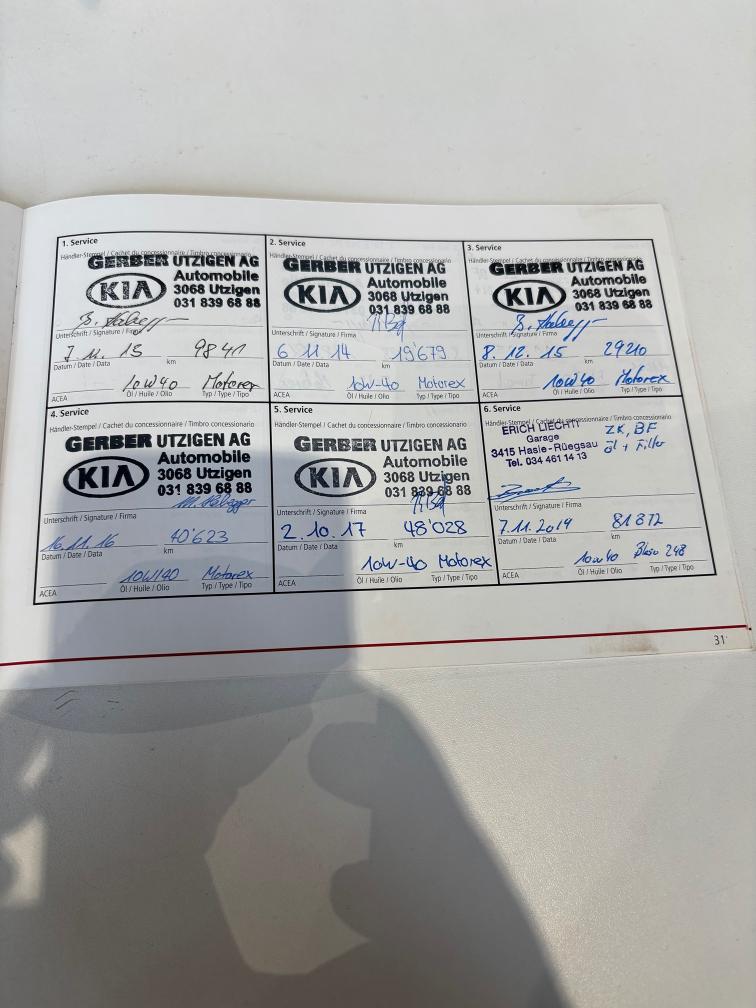 1. Service
Händler-Stempel / Cachet du concessionnaire / Timbro concessionario
GERBER UTZIGEN AG
KIA
Automobile
3068 Utzigen
031 839 68 88
Unterschrift / Signature / Firma
7.11.13 9841
Datum / Date / Data km
10W40 Motorex
ACEA Öl / Huile / Olio Typ / Type / Tipo
2. Service
Händler-Stempel / Cachet du concessionnaire / Timbro concessionario
GERBER UTZIGEN AG
KIA
Automobile
3068 Utzigen
031 839 68 88
Unterschrift / Signature / Firma
6 11 14 19'679
Datum / Date / Data km
10W-40 Motorex
ACEA Öl / Huile / Olio Typ / Type / Tipo
3. Service
Händler-Stempel / Cachet du concessionnaire / Timbro concessionario
GERBER UTZIGEN AG
KIA
Automobile
3068 Utzigen
031 839 68 88
Unterschrift / Signature / Firma
8.12.15 29210
Datum / Date / Data km
10W40 Motorex
ACEA Öl / Huile / Olio Typ / Type / Tipo
4. Service
Händler-Stempel / Cachet du concessionnaire / Timbro concessionario
GERBER UTZIGEN AG
KIA
Automobile
3068 Utzigen
031 839 68 88
Unterschrift / Signature / Firma
16.11.16 40'623
Datum / Date / Data km
10W40 Motorex
ACEA Öl / Huile / Olio Typ / Type / Tipo
5. Service
Händler-Stempel / Cachet du concessionnaire / Timbro concessionario
GERBER UTZIGEN AG
KIA
Automobile
3068 Utzigen
031 839 68 88
Unterschrift / Signature / Firma
2.10.17 48'028
Datum / Date / Data km
10W-40 Motorex
ACEA Öl / Huile / Olio Typ / Type / Tipo
6. Service
Händler-Stempel / Cachet du concessionnaire / Timbro concessionario
ERICH LIECHTI
Garage
3415 Hasle-Rüegsau
Tel. 034 461 14 13
ZK, BF
Öl + Filter
Unterschrift / Signature / Firma
7.11.2019 81872
Datum / Date / Data km
10W40 248
ACEA Öl / Huile / Olio Typ / Type / Tipo
31